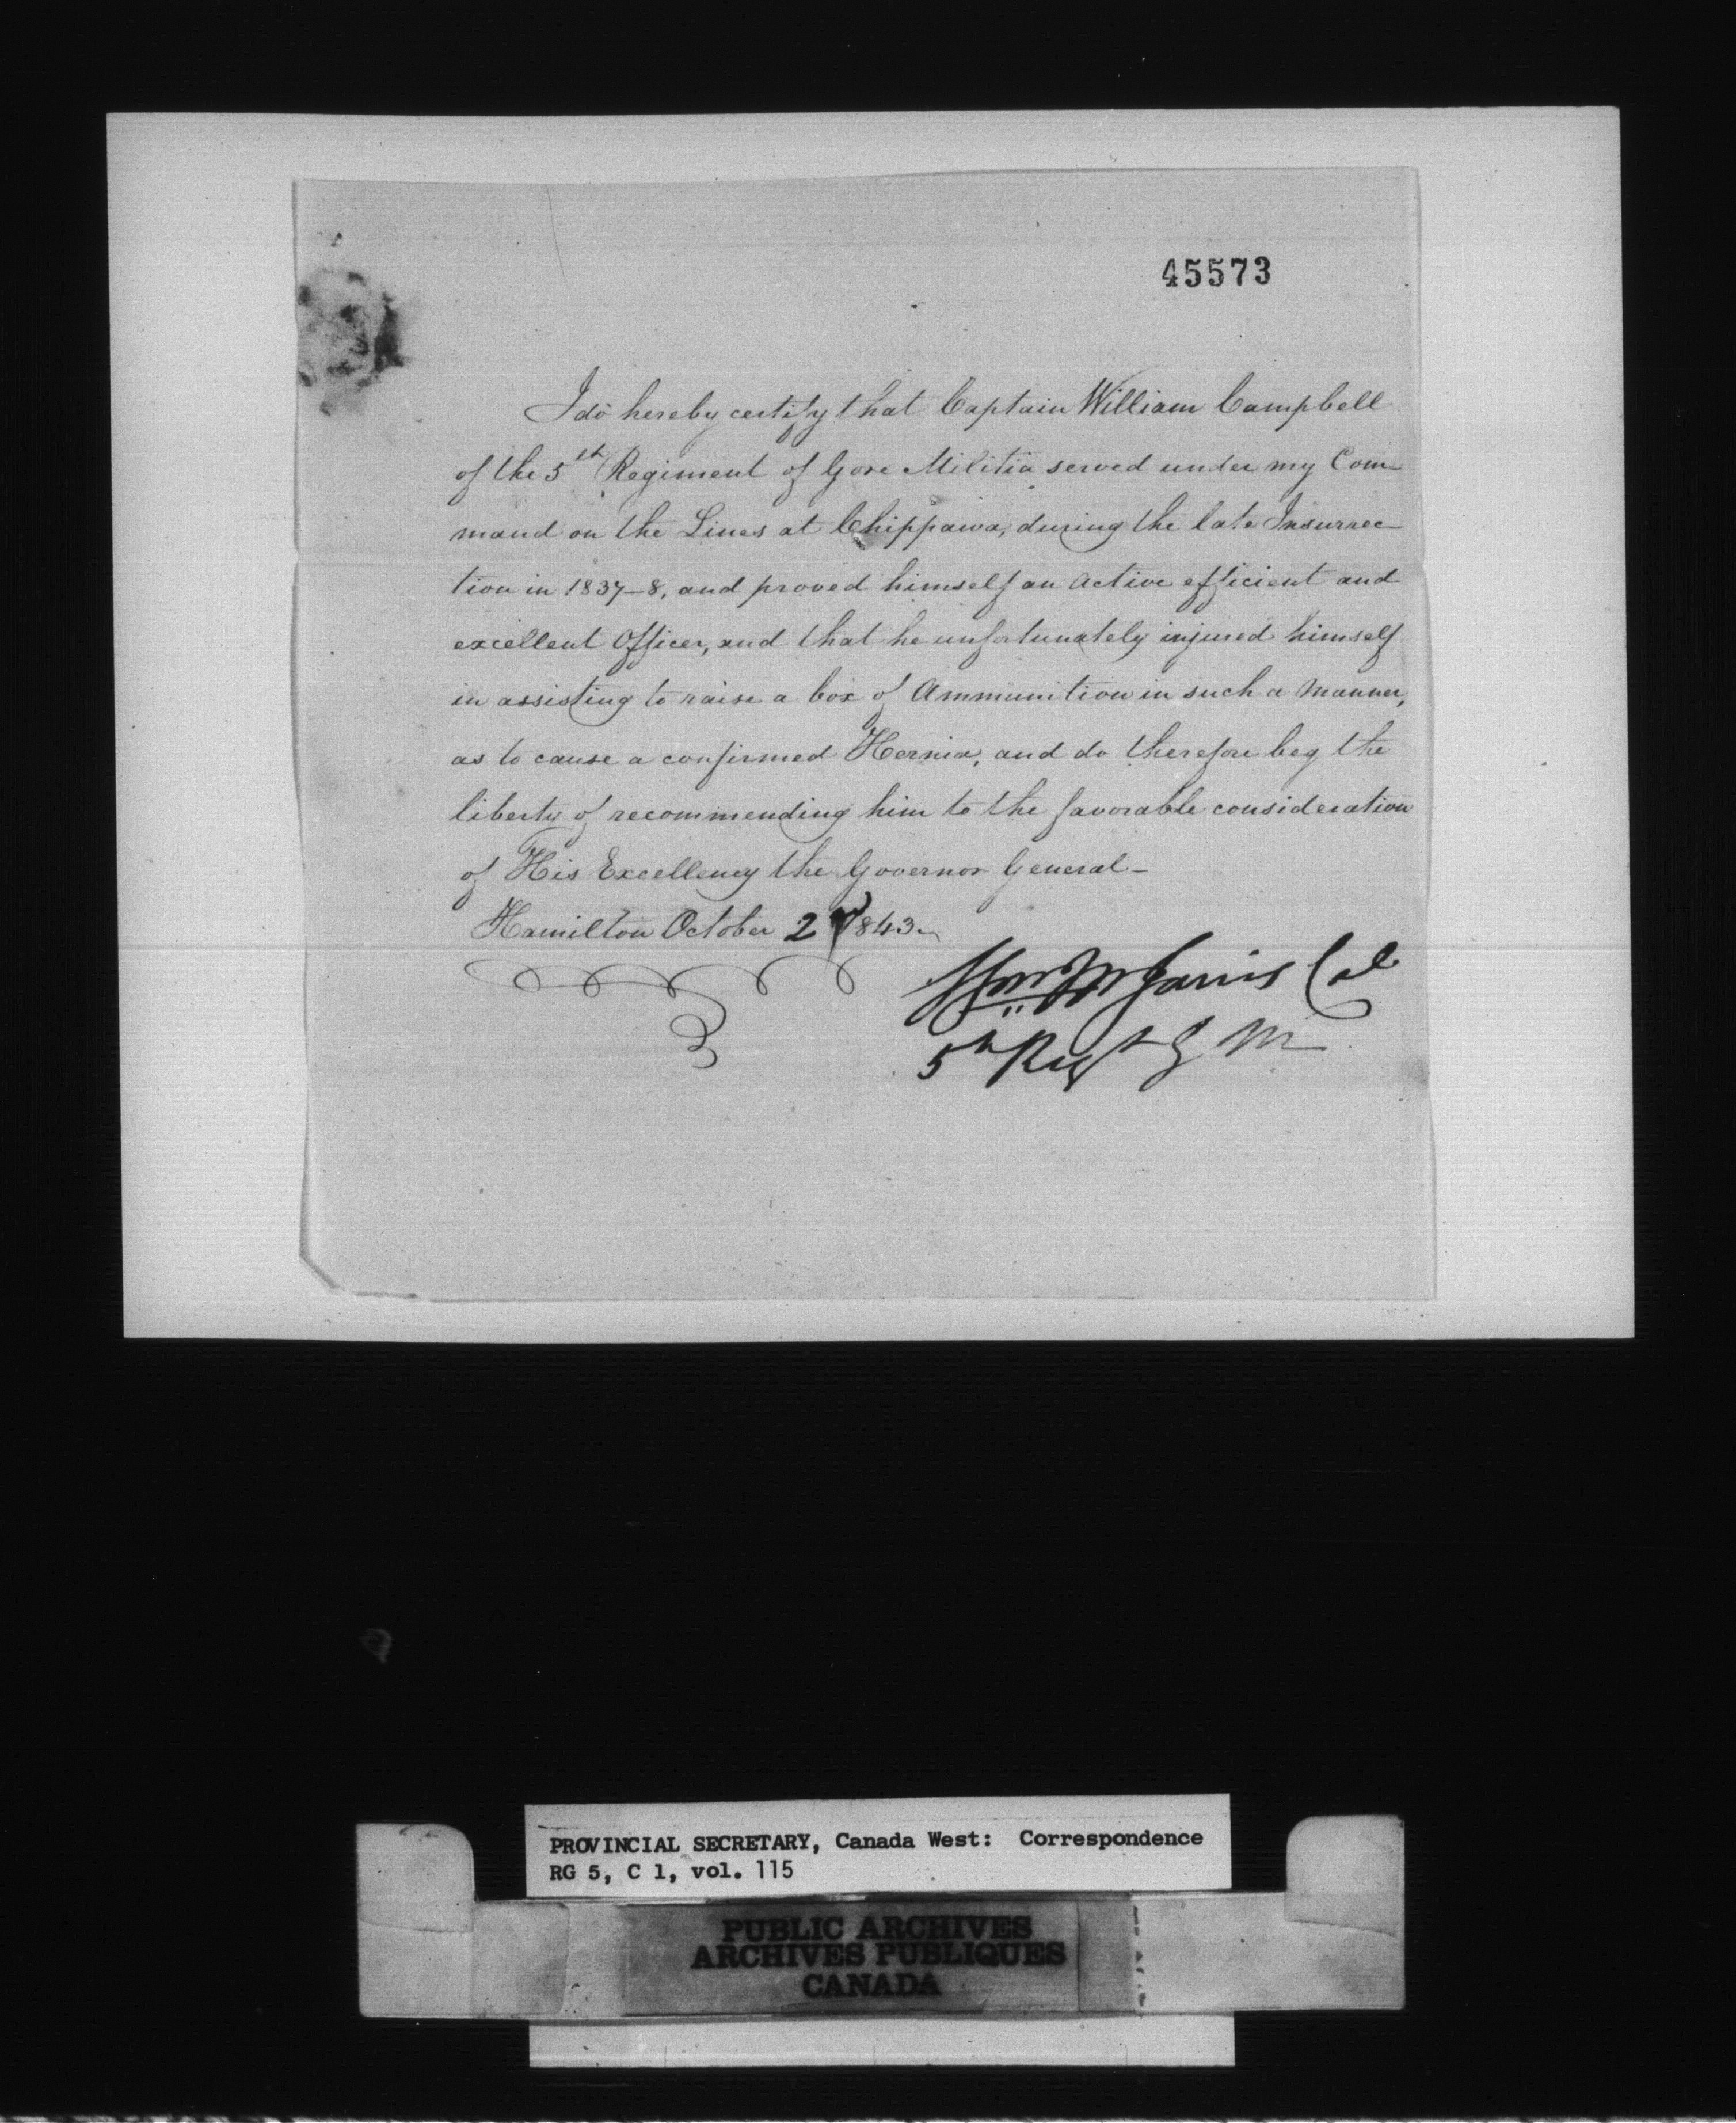 45573
I do hereby certify that Captain William Campbell
of the 5th Regiment of Gore Militia served under my Com-
mand on the Lines at Chippawa, during the late Insurrec-
tion in 1837-8, and proved himself an active efficient and
excellent Officer, and that he unfortunately injured himself
in assisting to raise a box of Ammunition in such a manner,
as to cause a confirmed Hernia, and do therefore beg the
liberty of recommending him to the favorable consideration
of His Excellency the Governor General-
Hamilton October 2 1843
Wm M Jarvis Col
5th Regt G M
PROVINCIAL SECRETARY, Canada West: Correspondence
RG 5, C 1, vol. 115
PUBLIC ARCHIVES
ARCHIVES PUBLIQUES
CANADA